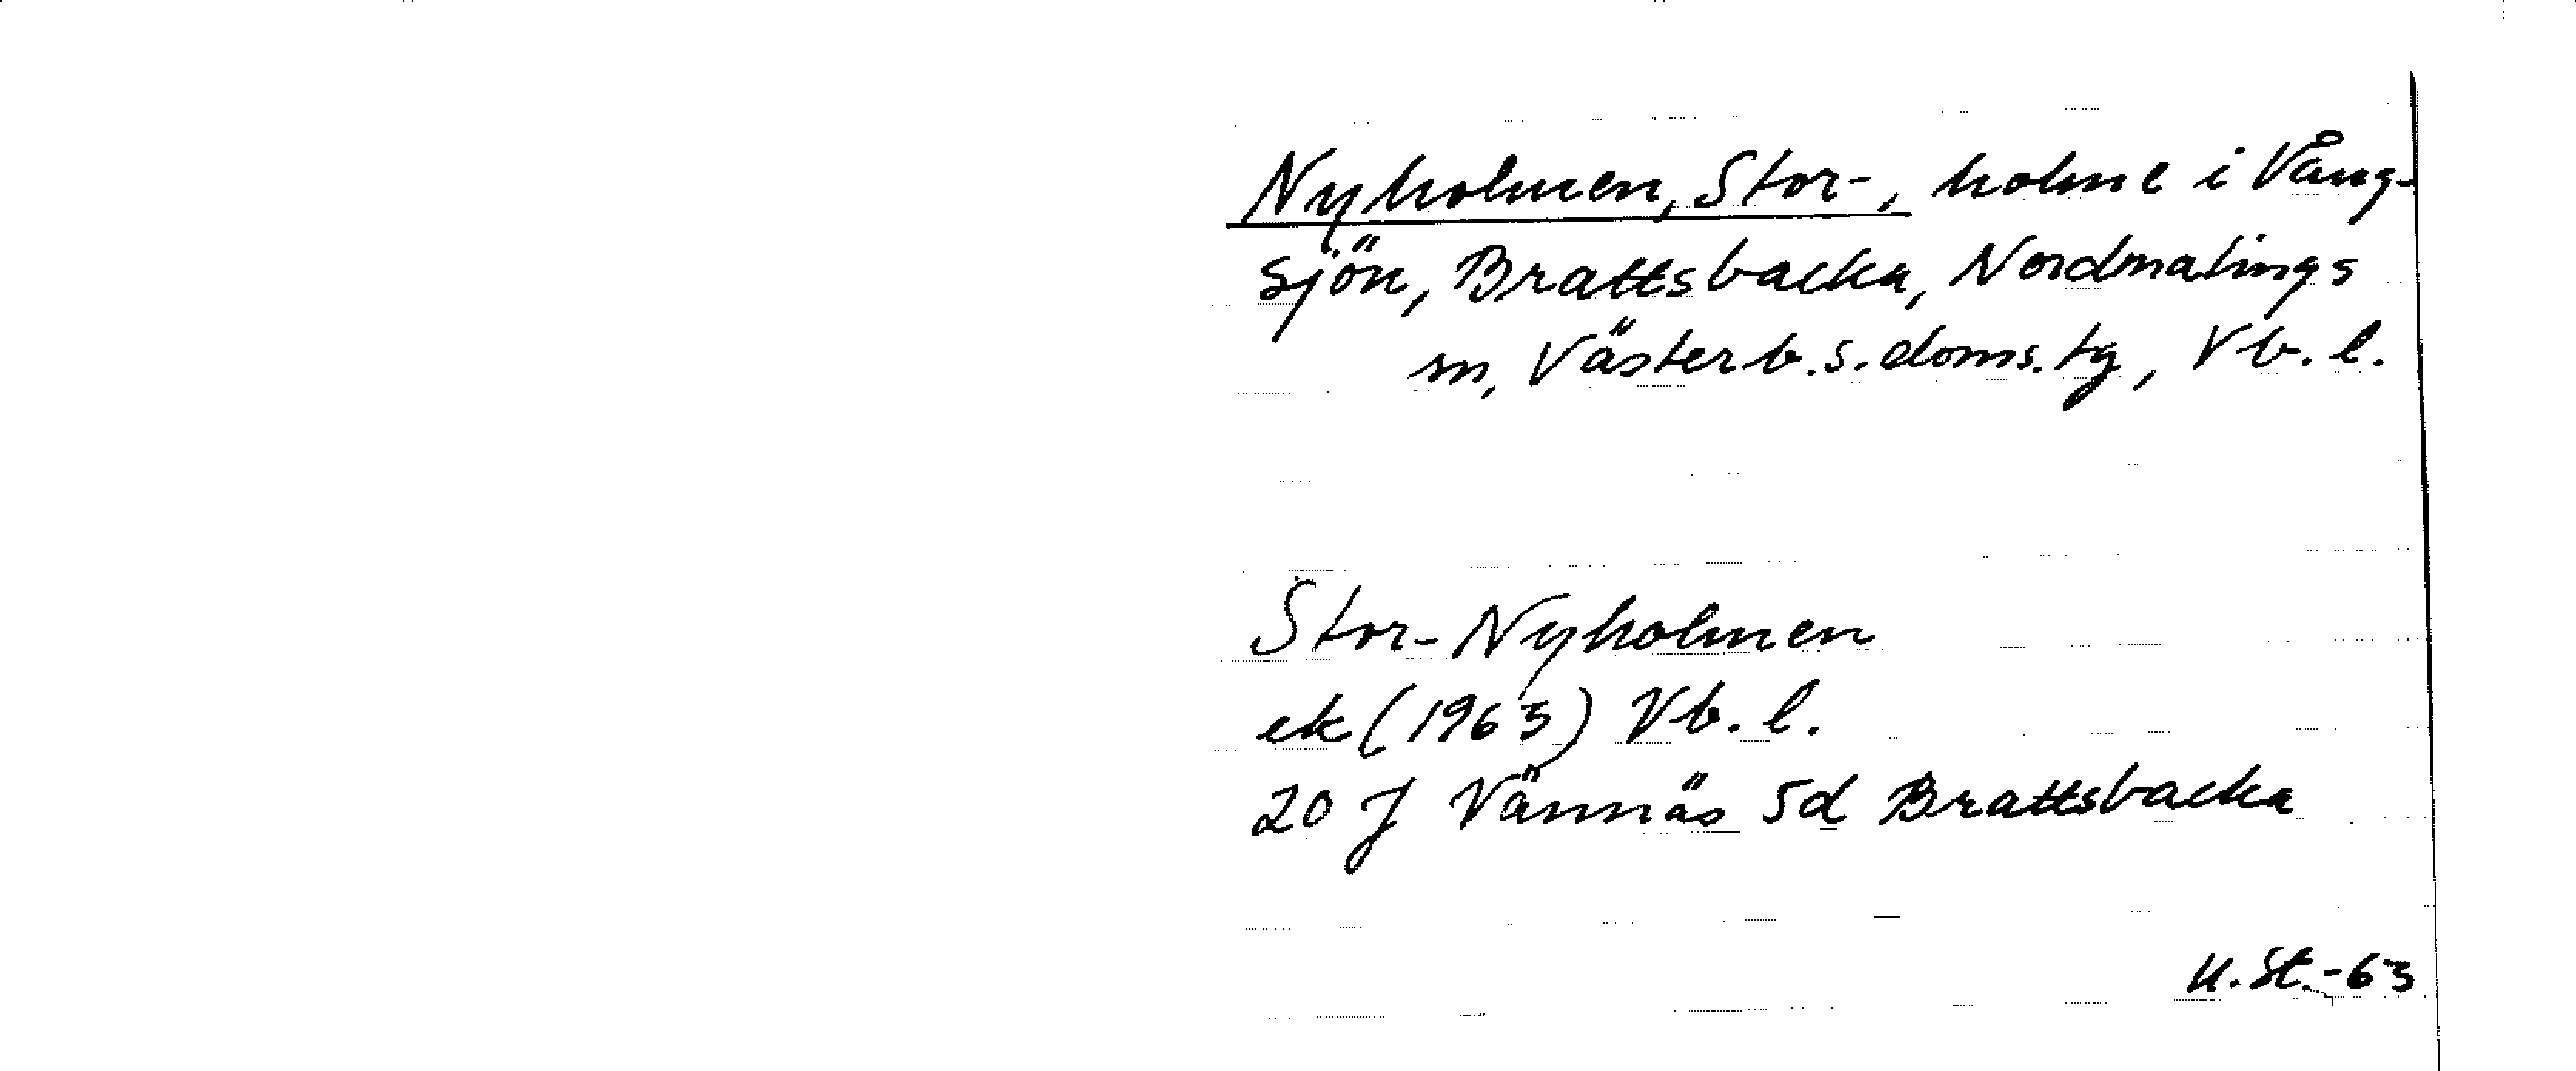 Nyholmen, Stor-, holme i Vång-
sjön, Brattsbacka, Nordmalings
sn, Västerb.s.doms.tg, Vb.l.
Stor-Nyholmen
ek (1963) Vb.l.
20 J Vännäs 5d Brattsbacka
U.St.-63